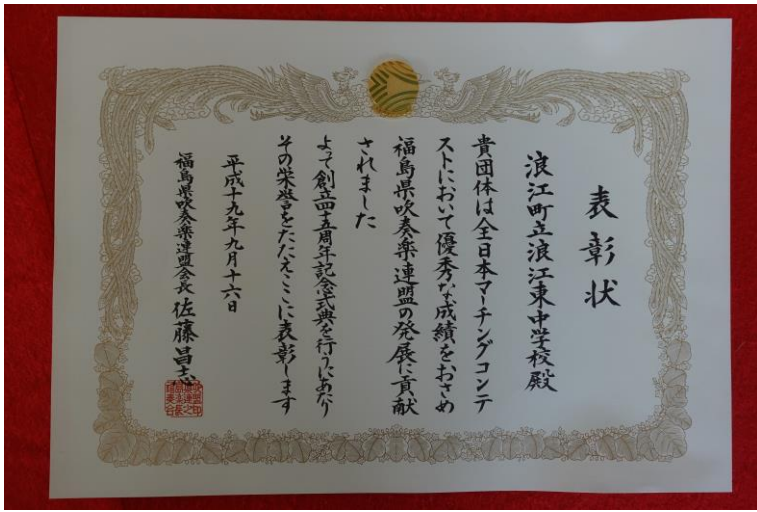 表彰状
浪江町立浪江東中学校殿
貴団体は全日本マーチングコンテ
ストにおいて優秀な成績をおさめ
福島県吹奏楽連盟の発展に貢献
されました
よって創立四十五周年記念式典を行うにあたり
その栄誉をたたえここに表彰します
平成十九年九月十六日
福島県吹奏楽連盟会長 佐藤昌志